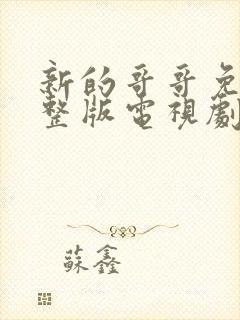 新的哥哥免
整版電視劇
蘇鑫